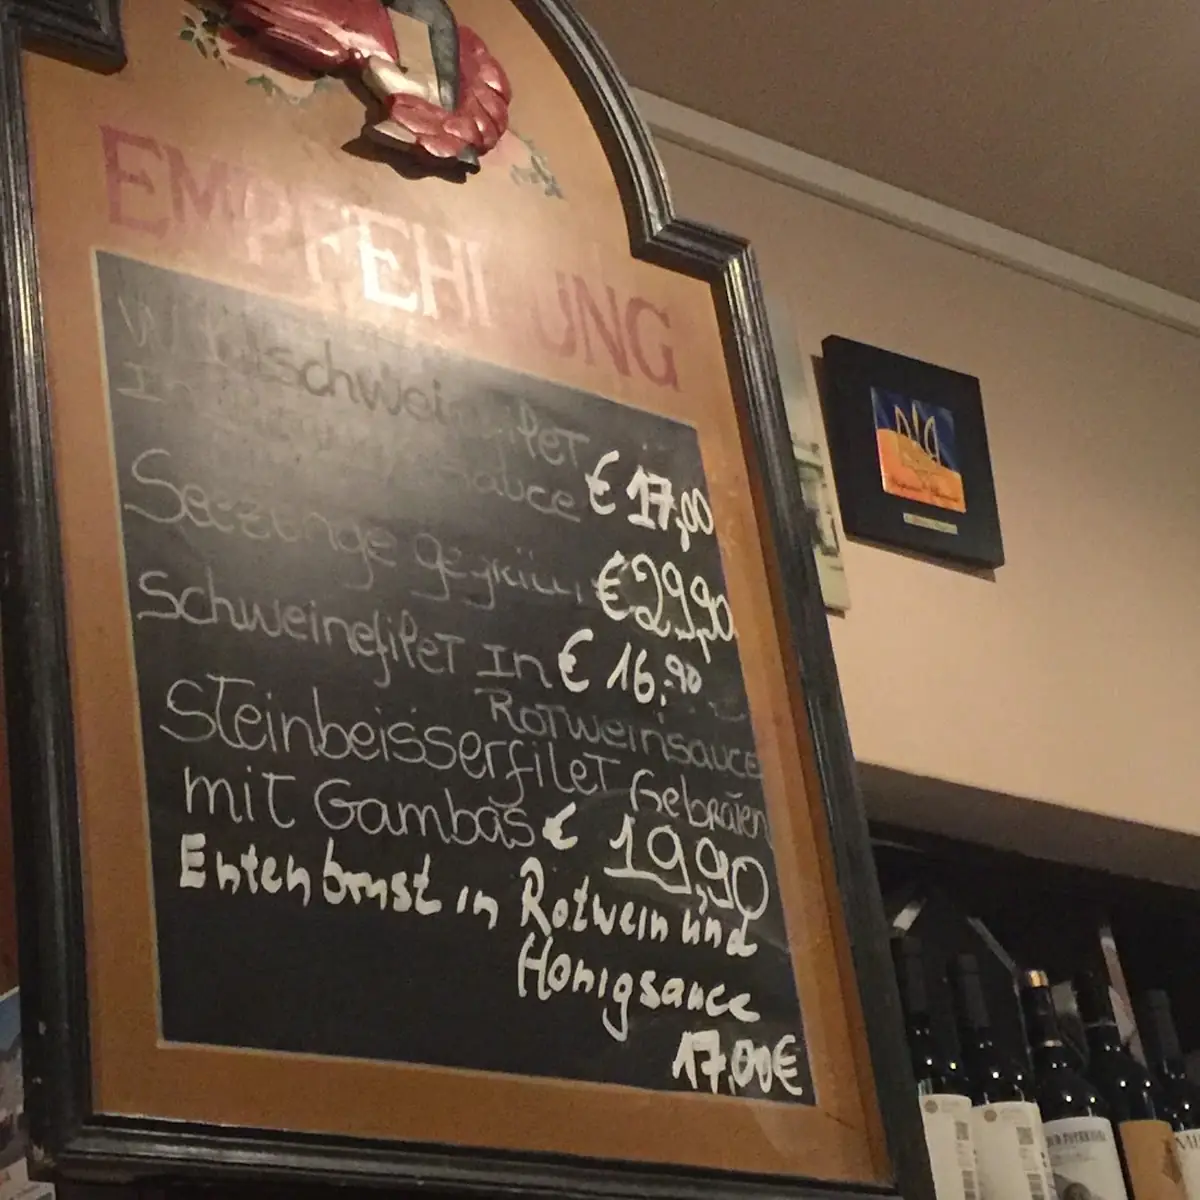 EMPFEHLUNG
Wildschweinfilet
In sauce € 17,00
Seezunge gegrillt € 29,90
Schweinefilet In € 16,90
Rotweinsauce
Steinbeisserfilet Gebraten
mit Gambas € 19,90
Entenbrust in Rotwein und
Honigsauce
17,00€